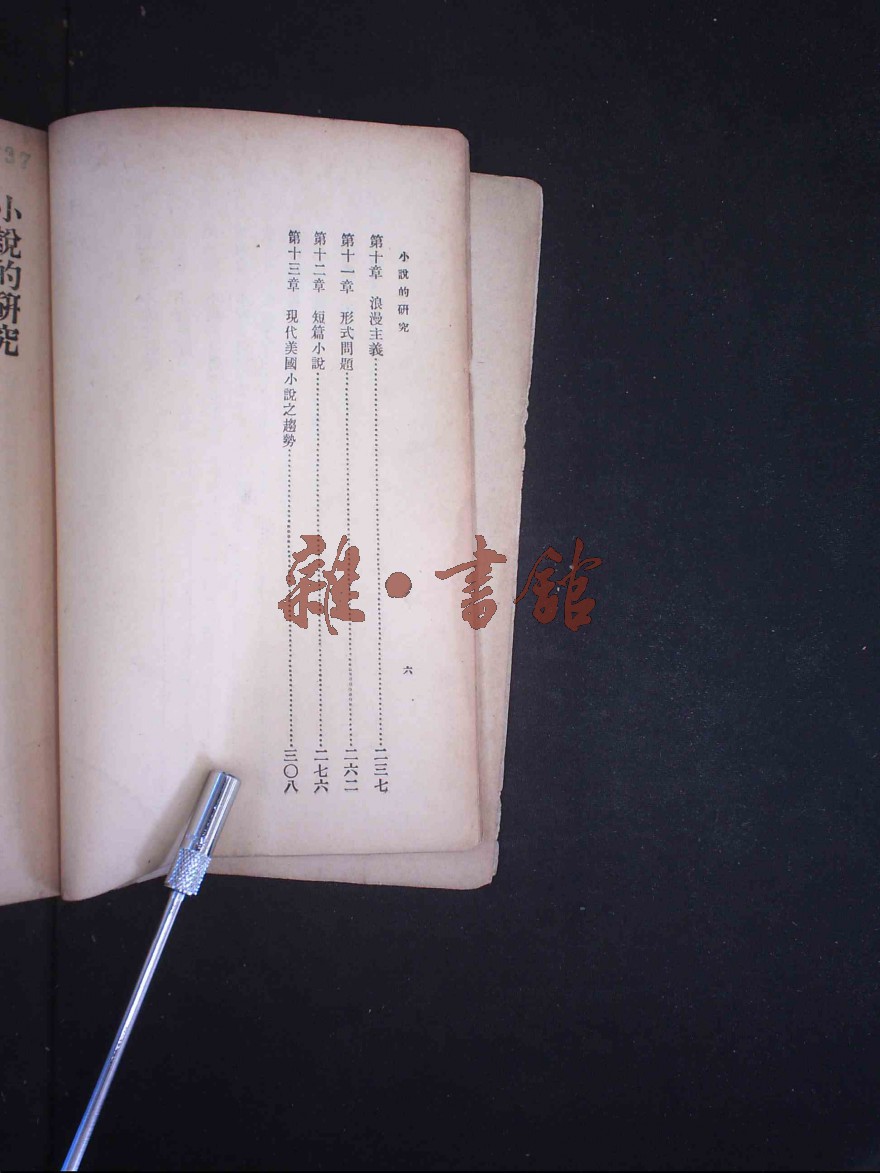 小說的研究
六
第十章　浪漫主義……二三七
第十一章　形式問題……二六二
第十二章　短篇小說……二七六
第十三章　現代美國小說之趨勢……三〇八
37
小說的研究
雜·書館